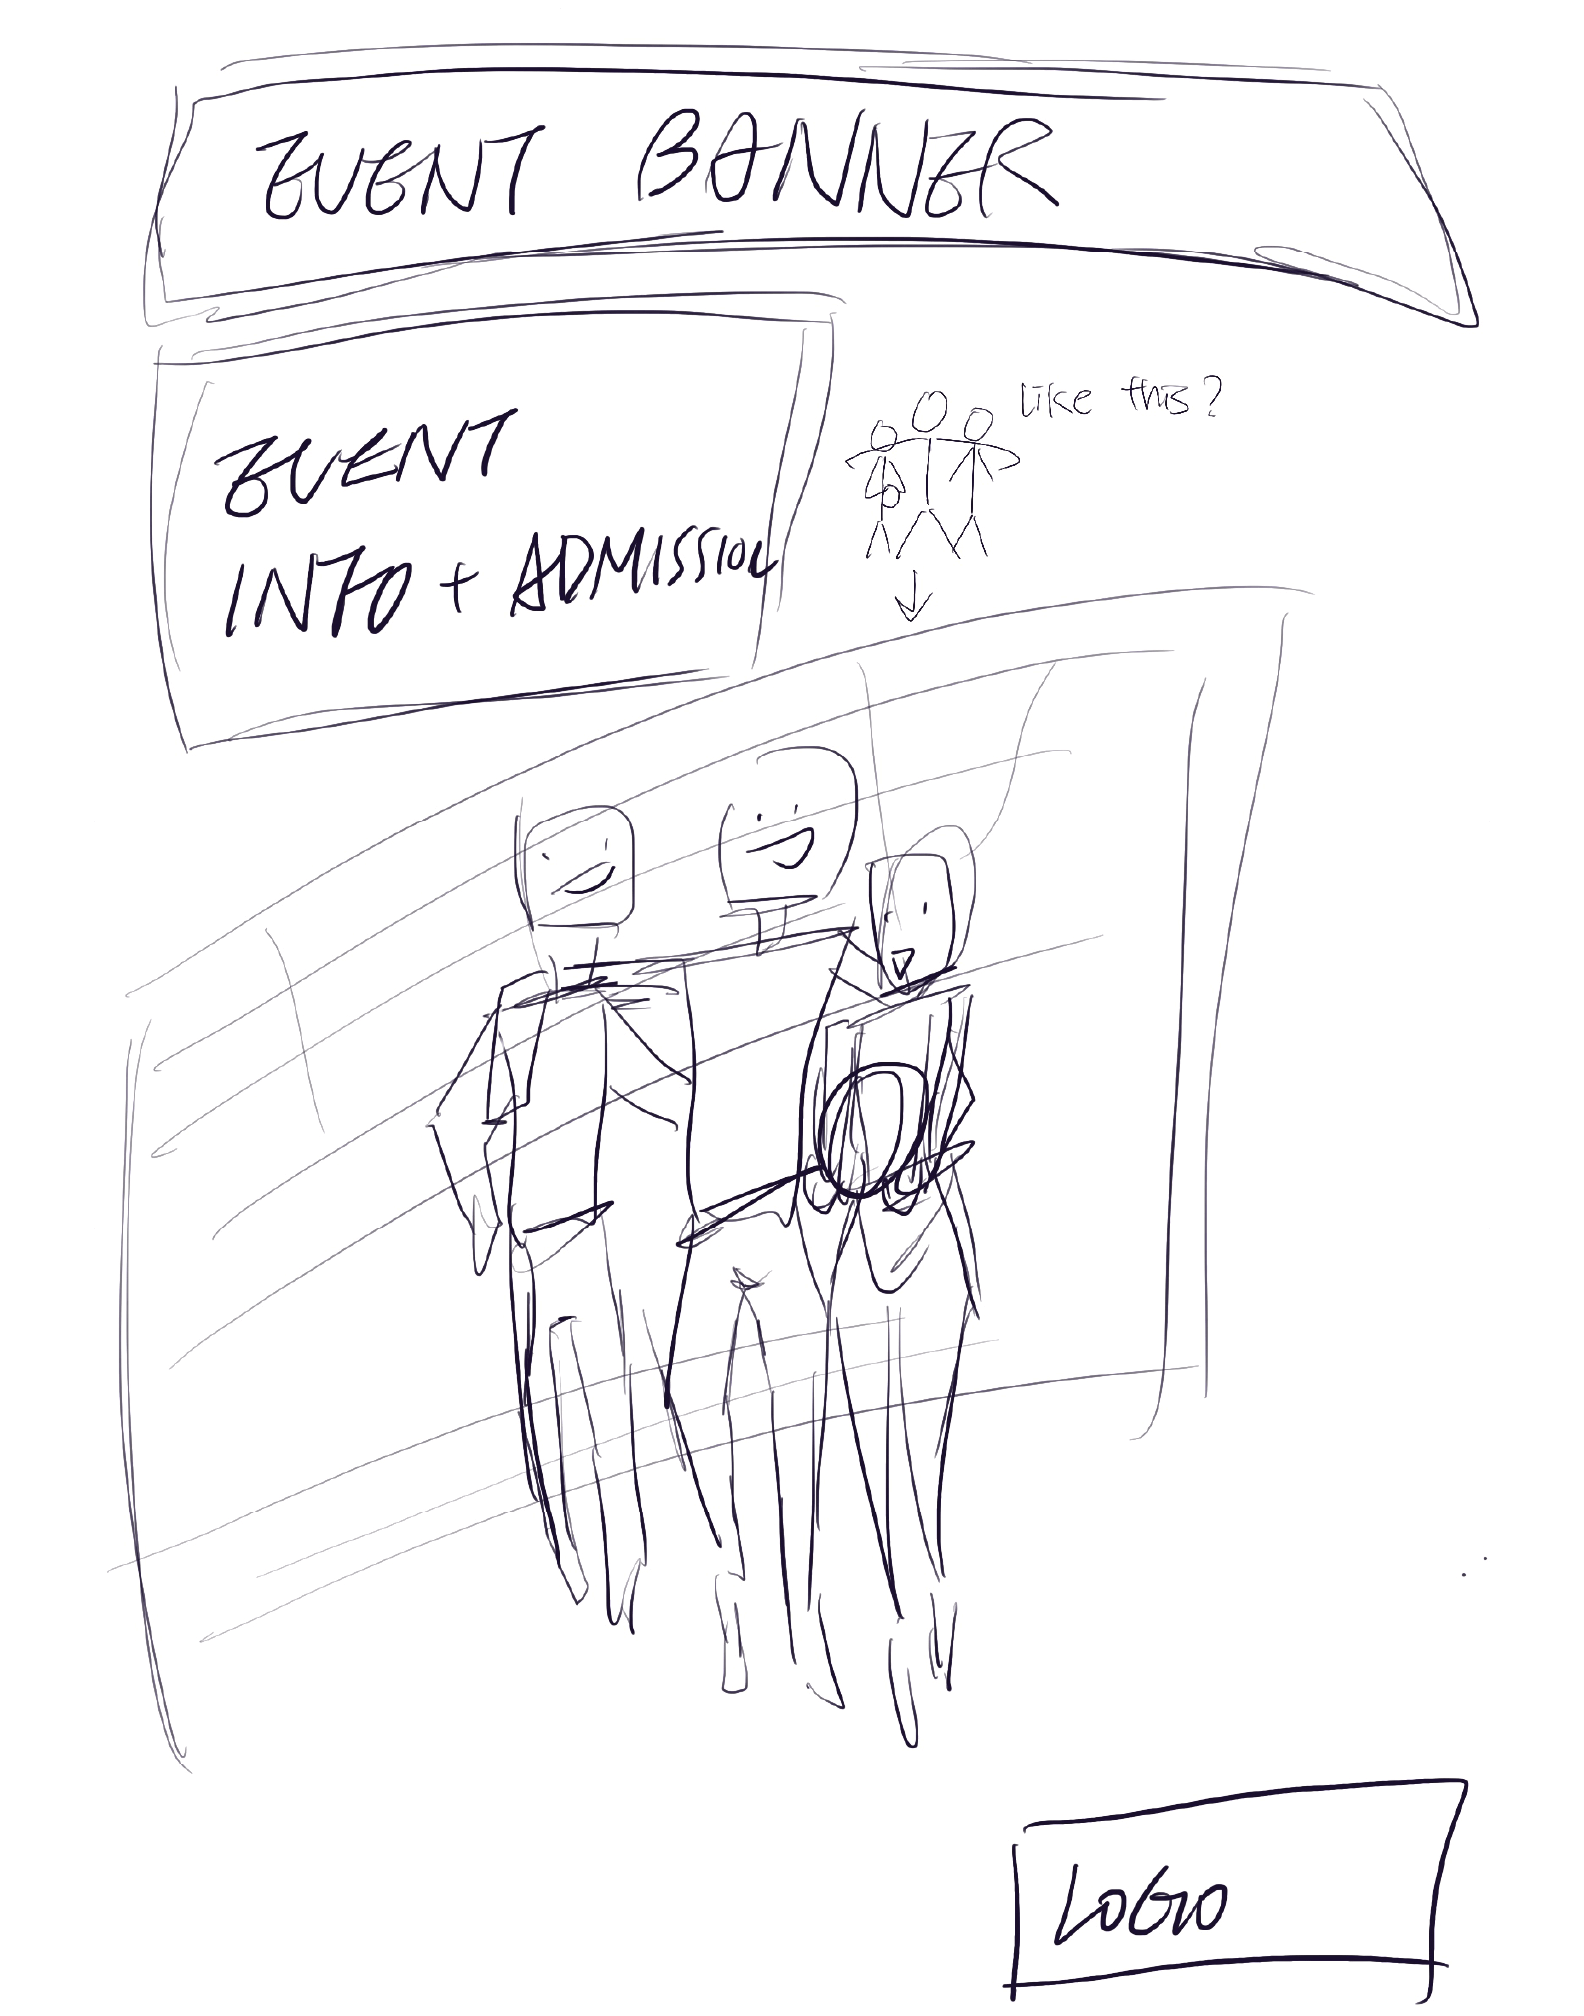 EVENT BANNER
EVENT
INFO + ADMISSION
like this?
LOGO